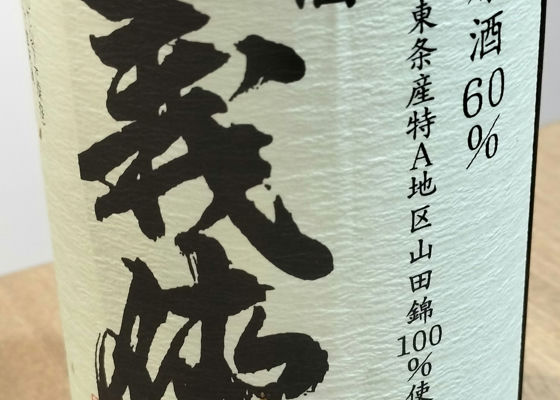 酒60%
東条産特A地区山田錦100%使
義侠